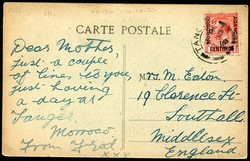 CARTE POSTALE
Dear Mother,
Just a couple
of lines to you
just having
a day at
Tanger.
Morroco
From Fred
xxx
Mrs. M. Eaton
19 Clarence St
Southall
Middlesex
England
CENTIMOS